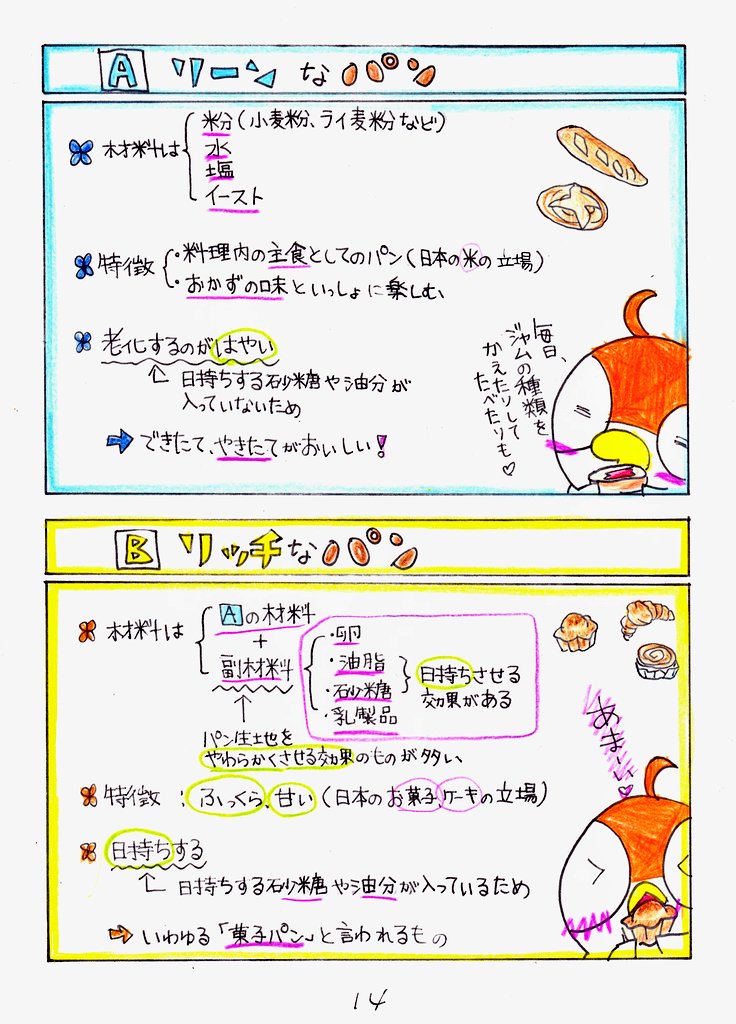 A リーンなパン
材料は
粉分(小麦粉、ライ麦粉など)
水
塩
イースト
特徴
・料理内の主食としてのパン(日本の米の立場)
・おかずの味といっしょに楽しむ、
老化するのがはやい
日持ちする砂糖や油分が
入っていないため
できたて、やきたてがおいしい!
毎日、
ジャムの種類を
かえたりして
たべたりも♡
B リッチなパン
材料は
Aの材料
+
副材料
・卵
・油脂
・砂糖
・乳製品
日持ちさせる
効果がある
パン生地を
やわらかくさせる効果のものが多い、
特徴:ふっくら、甘い(日本のお菓子、ケーキの立場)
日持ちする
日持ちする砂糖や油分が入っているため
いわゆる「菓子パン」と言われるもの
あまーい♡
14